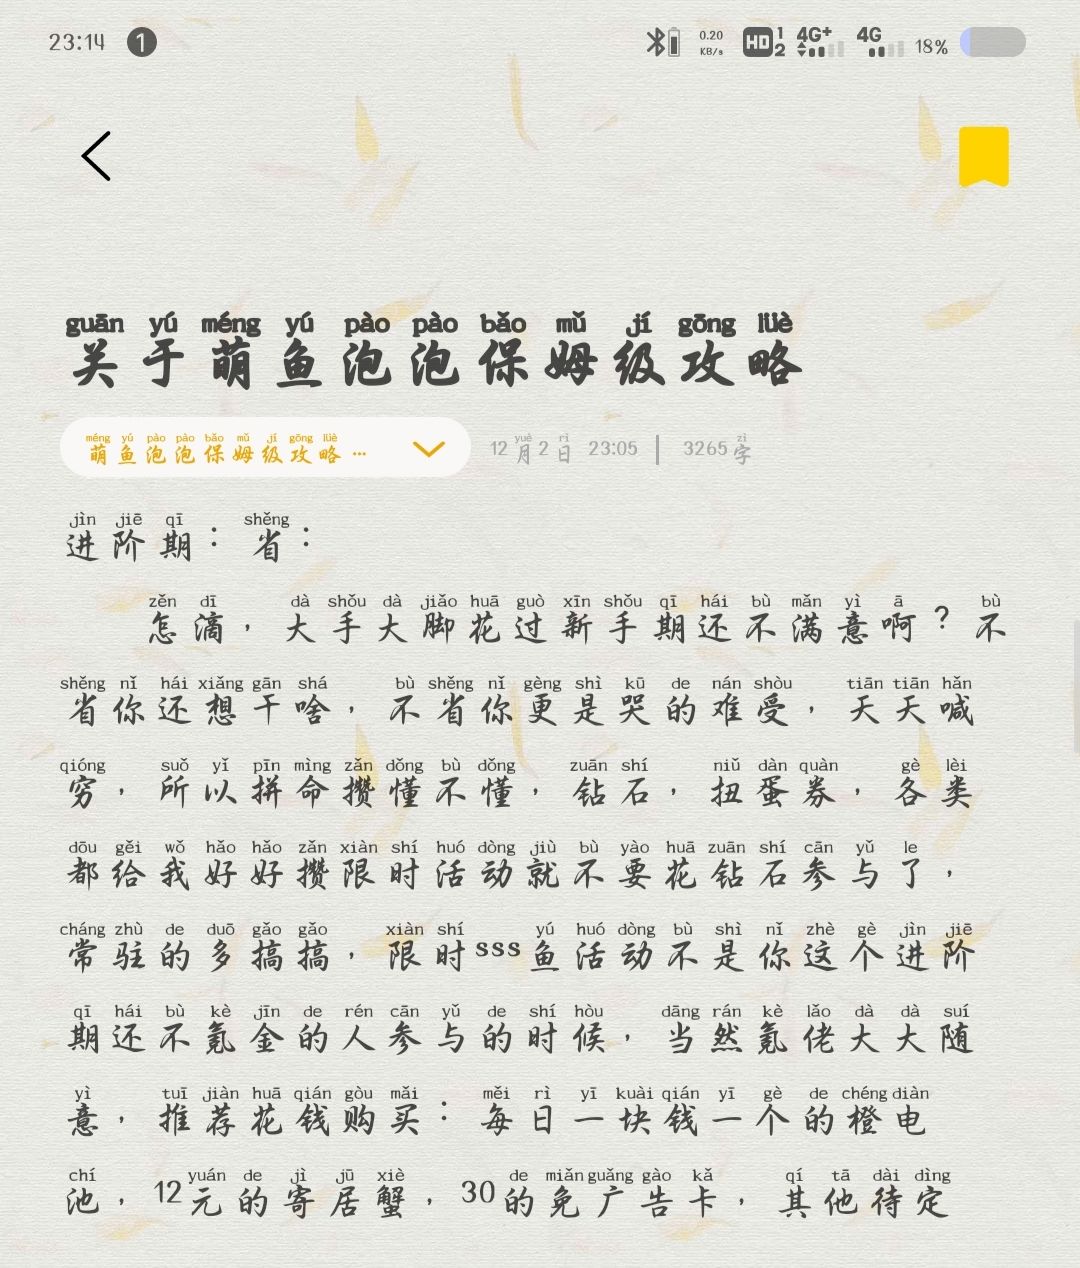 23:14 1 0.20 KB/s HD 1 2 4G+ 4G 18%
guān yú méng yú pào pào bǎo mǔ jí gōng lüè
关于萌鱼泡泡保姆级攻略
méng yú pào pào bǎo mǔ jí gōng lüè yuè rì zì
萌鱼泡泡保姆级攻略… 12月2日 23:05 | 3265字
jìn jiē qī shěng
进阶期：省：
zěn dī dà shǒu dà jiǎo huā guò xīn shǒu qī hái bù mǎn yì ā bù
怎滴，大手大脚花过新手期还不满意啊？不
shěng nǐ hái xiǎng gān shá bù shěng nǐ gèng shì kū de nán shòu tiān tiān hǎn
省你还想干啥，不省你更是哭的难受，天天喊
qióng suǒ yǐ pīn mìng zǎn dǒng bù dǒng zuān shí niǔ dàn quàn gè lèi
穷，所以拼命攒懂不懂，钻石，扭蛋券，各类
dōu gěi wǒ hǎo hǎo zǎn xiàn shí huó dòng jiù bù yào huā zuān shí cān yǔ le
都给我好好攒限时活动就不要花钻石参与了，
cháng zhù de duō gǎo gǎo xiàn shí yú huó dòng bù shì nǐ zhè gè jìn jiē
常驻的多搞搞，限时sss鱼活动不是你这个进阶
qī hái bù kè jīn de rén cān yǔ de shí hòu dāng rán kè lǎo dà dà suí
期还不氪金的人参与的时候，当然氪佬大大随
yì tuī jiàn huā qián gòu mǎi měi rì yī kuài qián yī gè de chéng diàn
意，推荐花钱购买：每日一块钱一个的橙电
chí yuán de jì jū xiè de miǎn guǎng gào kǎ qí tā dài dìng
池，12元的寄居蟹，30的免广告卡，其他待定